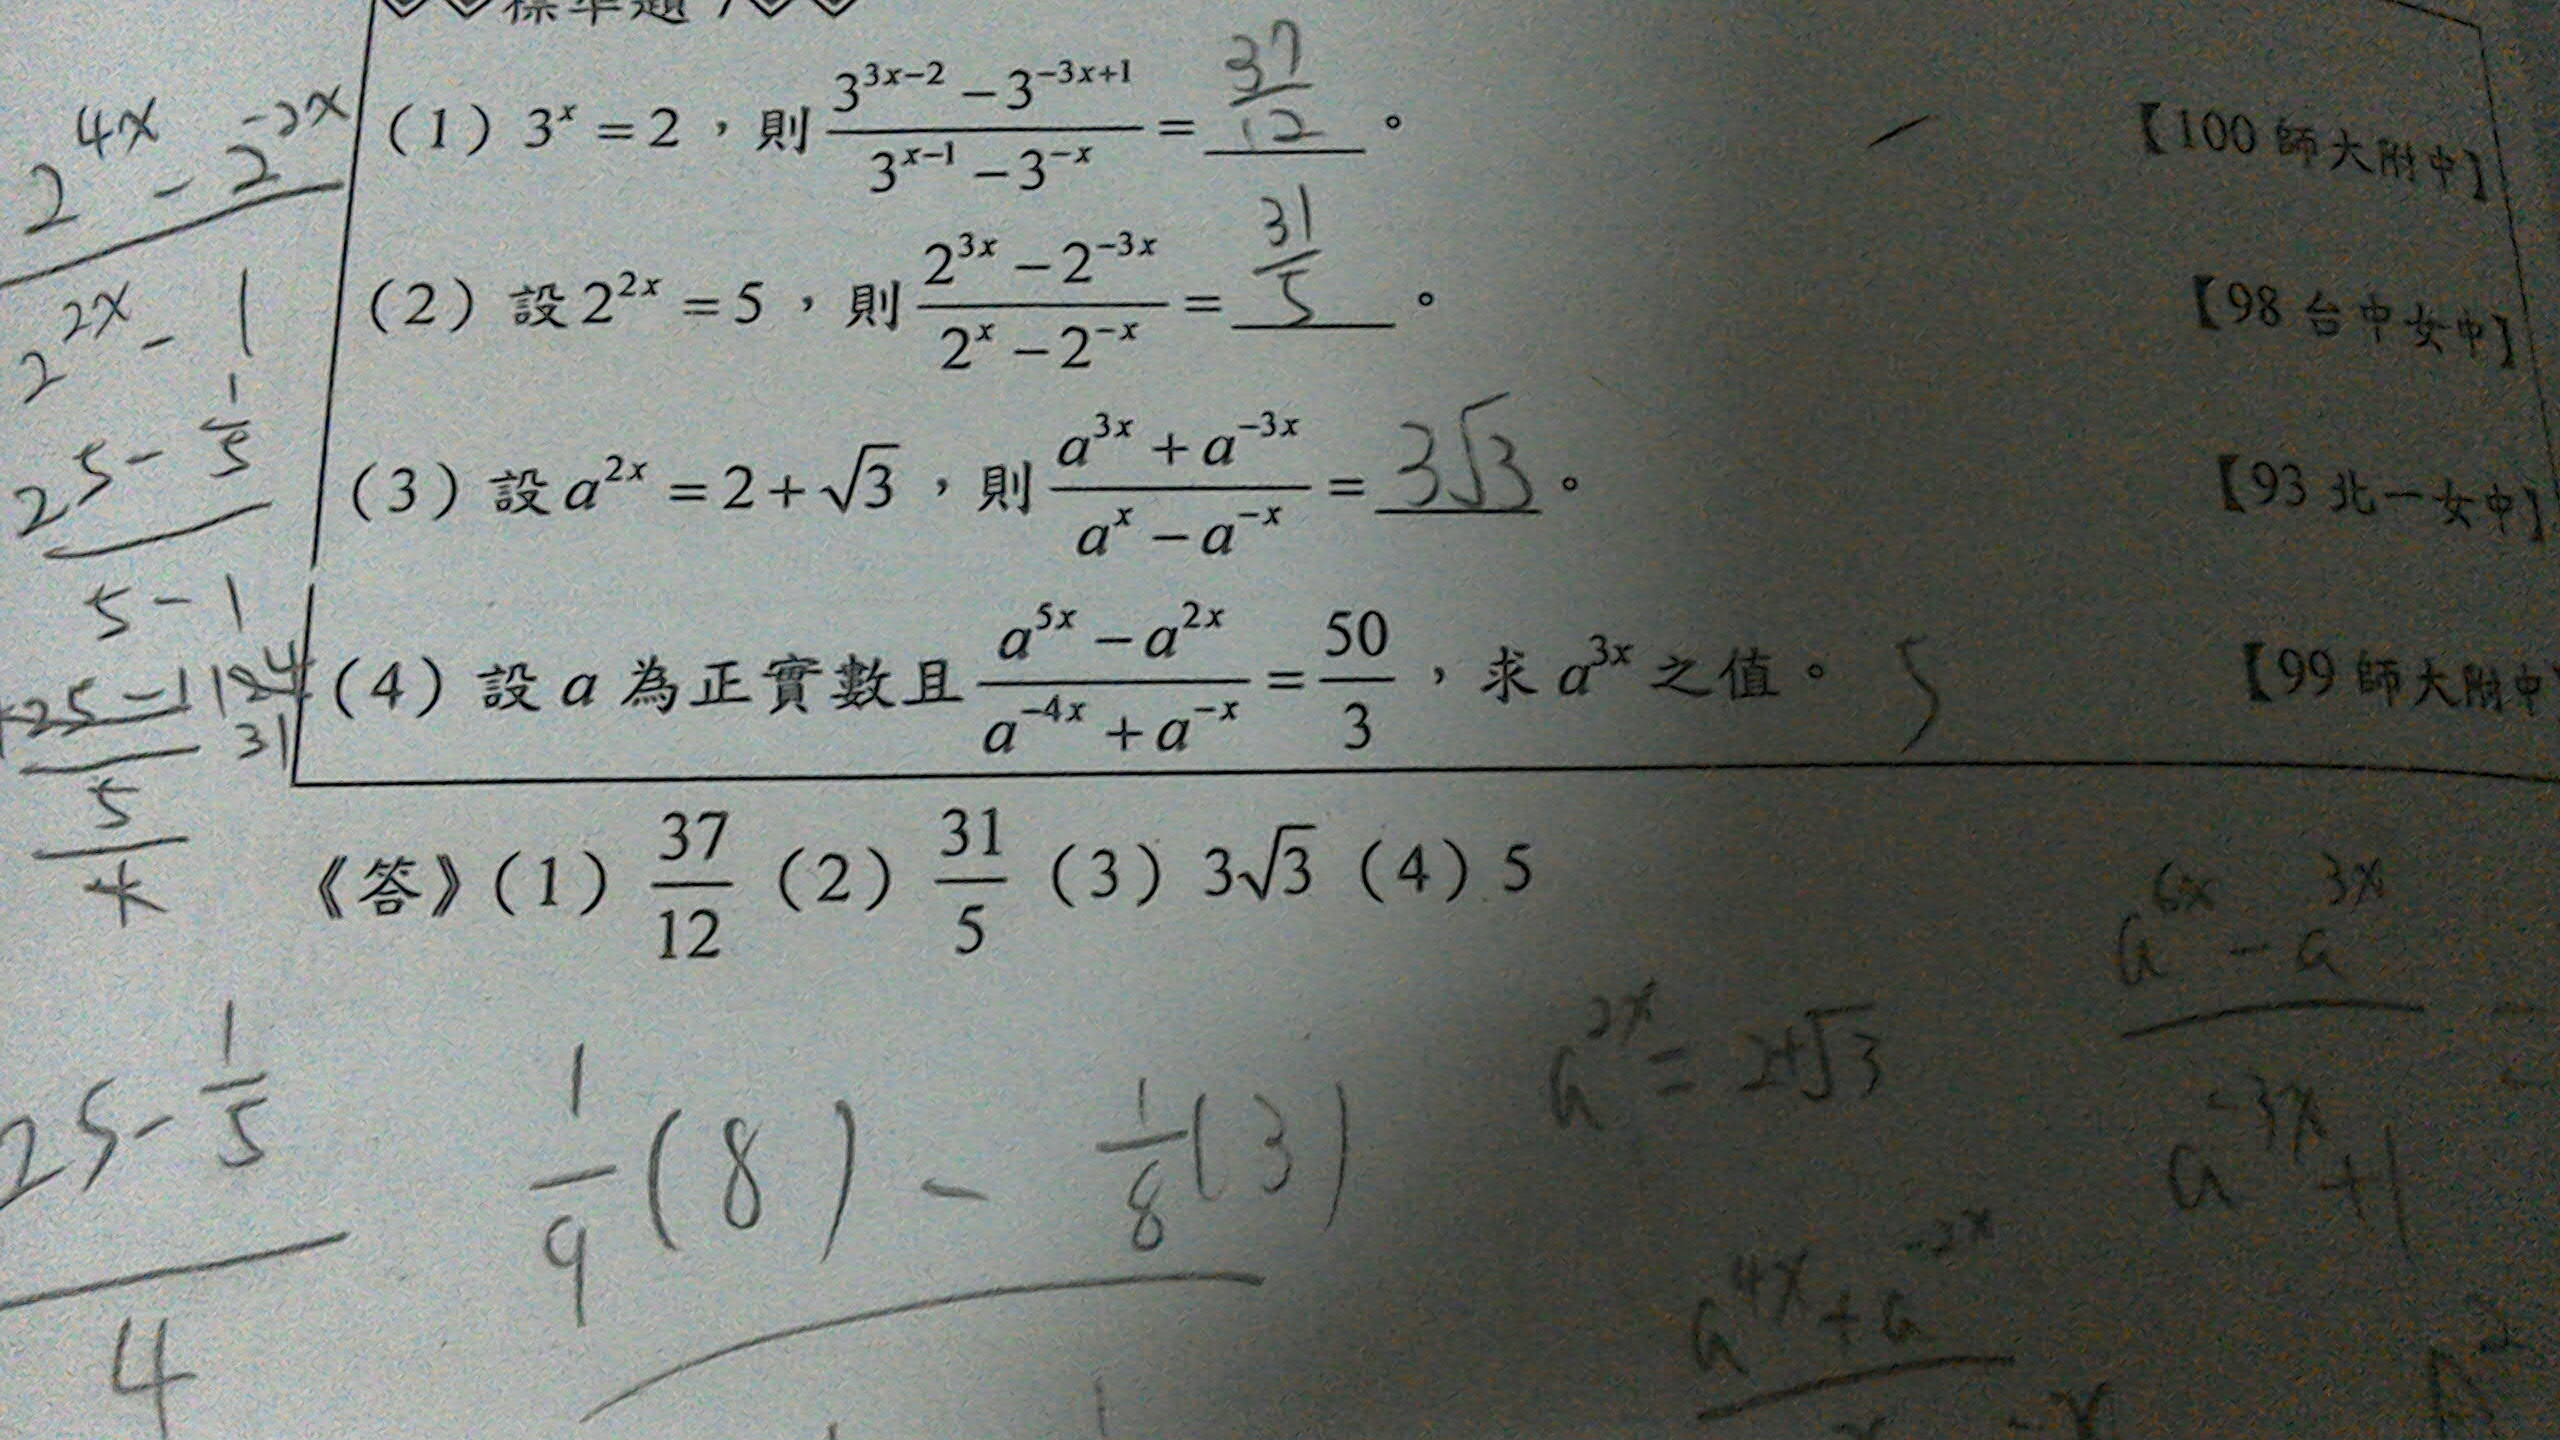 標準題 7
(1) 3^x = 2，則 (3^{3x-2} - 3^{-3x+1}) / (3^{x-1} - 3^{-x}) = 37/12 。 【100 師大附中】
(2) 設 2^{2x} = 5，則 (2^{3x} - 2^{-3x}) / (2^x - 2^{-x}) = 31/5 。 【98 台中女中】
(3) 設 a^{2x} = 2 + √3，則 (a^{3x} + a^{-3x}) / (a^x - a^{-x}) = 3√3 。 【93 北一女中】
(4) 設 a 為正實數且 (a^{5x} - a^{2x}) / (a^{-4x} + a^{-x}) = 50/3，求 a^{3x} 之值。 5 【99 師大附中
《答》(1) 37/12 (2) 31/5 (3) 3√3 (4) 5
2^{4x} - 2^{-2x}
2^{2x} - 1
25 - 1/5
5 - 1
125 - 1 124
31
5
4
25 - 1/5
4
1/9 (8) - 1/8 (3)
a^{2x} = 2+√3
a^{6x} - a^{3x}
a^{-3x} + 1
a^{4x} + a^{-2x}